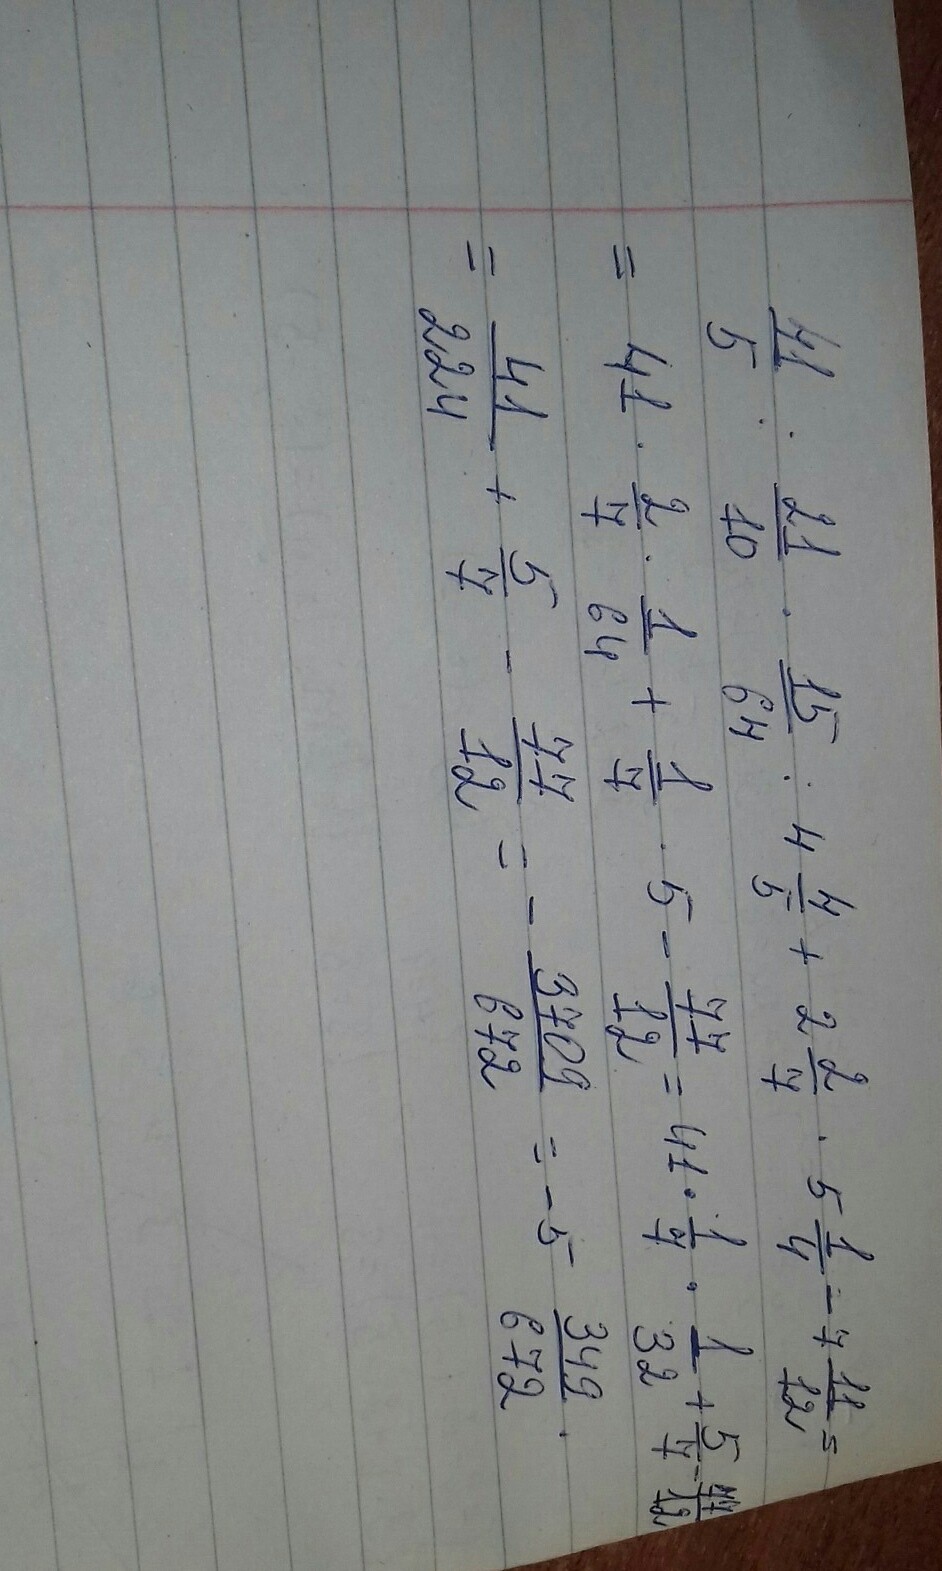 41/5 : 21/10 · 15/64 : 4 4/5 + 2 2/7 · 5 1/4 - 7 11/12 =
= 41 · 2/7 · 1/64 + 1/7 · 5 - 77/12 = 41 · 1/7 · 1/32 + 5/7 - 77/12
= 41/224 + 5/7 - 77/12 = - 3709/672 = -5 349/672 .